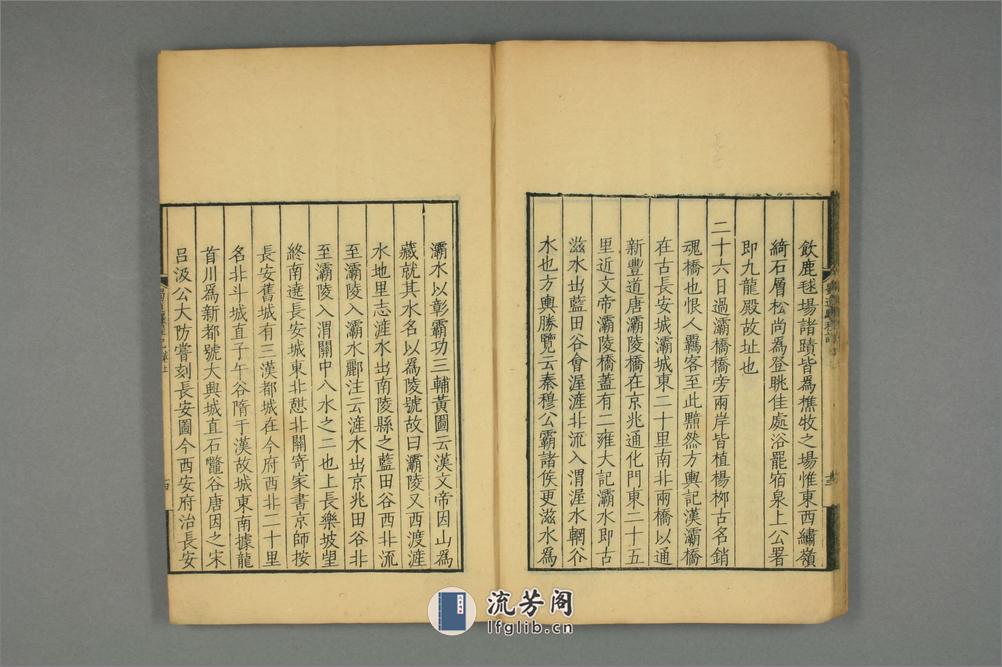 飲鹿毬場諸蹟皆爲樵牧之場惟東西繡嶺
綺石層松尚爲登眺佳處浴罷宿泉上公署
即九龍殿故址也
二十六日過灞橋橋旁兩岸皆植楊栁古名銷
魂橋也恨人羈客至此黯然方輿記漢灞橋
在古長安城灞城東二十里南北兩橋以通
新豐道唐灞陵橋在京兆通化門東二十五
里近文帝灞陵橋蓋有二雍大記灞水即古
滋水出藍田谷會滻㴲北流入渭滻水輞谷
水也方輿勝覽云秦穆公霸諸侯更滋水爲
灞水以彰霸功三輔黃圖云漢文帝因山爲
藏就其水名以爲陵號故曰灞陵又西渡滻
水地里志滻水出南陵縣之藍田谷西北流
至灞陵入灞水酈注云滻水出京兆田谷北
至灞陵入渭關中入水之二也上長樂坡望
終南遶長安城東北憇北關寄家書京師按
長安舊城有三漢都城在今府西北二十里
名北斗城直子午谷隋于漢故城東南據龍
首川爲新都號大興城直石鼈谷唐因之宋
呂汲公大防嘗刻長安圖今西安府治長安
流芳阁
lfglib.cn